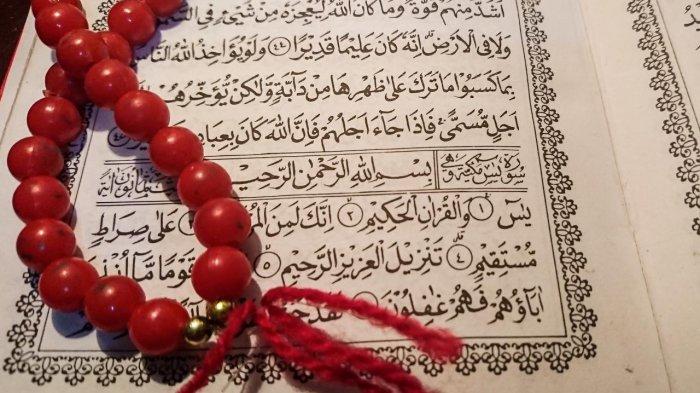 اَشَدَّ مِنْهُمْ قُوَّةً وَمَا كَانَ اللّٰهُ لِيُعْجِزَهُ مِنْ شَيْءٍ فِي
وَلَا فِي الْاَرْضِ اِنَّهُ كَانَ عَلِيمًا قَدِيرًا ﴿٤٤﴾ وَلَوْ يُؤَاخِذُ اللّٰهُ النَّاسَ
بِمَا كَسَبُوا مَا تَرَكَ عَلٰى ظَهْرِهَا مِنْ دَابَّةٍ وَلٰكِنْ يُؤَخِّرُهُمْ
اَجَلٍ مُسَمًّى فَاِذَا جَاءَ اَجَلُهُمْ فَاِنَّ اللّٰهَ كَانَ
سُورَةُ يٰسٓ مَكِّيَّةٌ وَهِيَ بِسْمِ اللّٰهِ الرَّحْمٰنِ الرَّحِيمِ
يٰسٓ ﴿١﴾ وَالْقُرْاٰنِ الْحَكِيمِ ﴿٢﴾ اِنَّكَ لَمِنَ عَلٰى صِرَاطٍ
مُسْتَقِيمٍ ﴿٤﴾ تَنْزِيلَ الْعَزِيزِ الرَّحِيمِ ﴿٥﴾ قَوْمًا مَا
اٰبَاؤُهُمْ فَهُمْ غَافِلُونَ